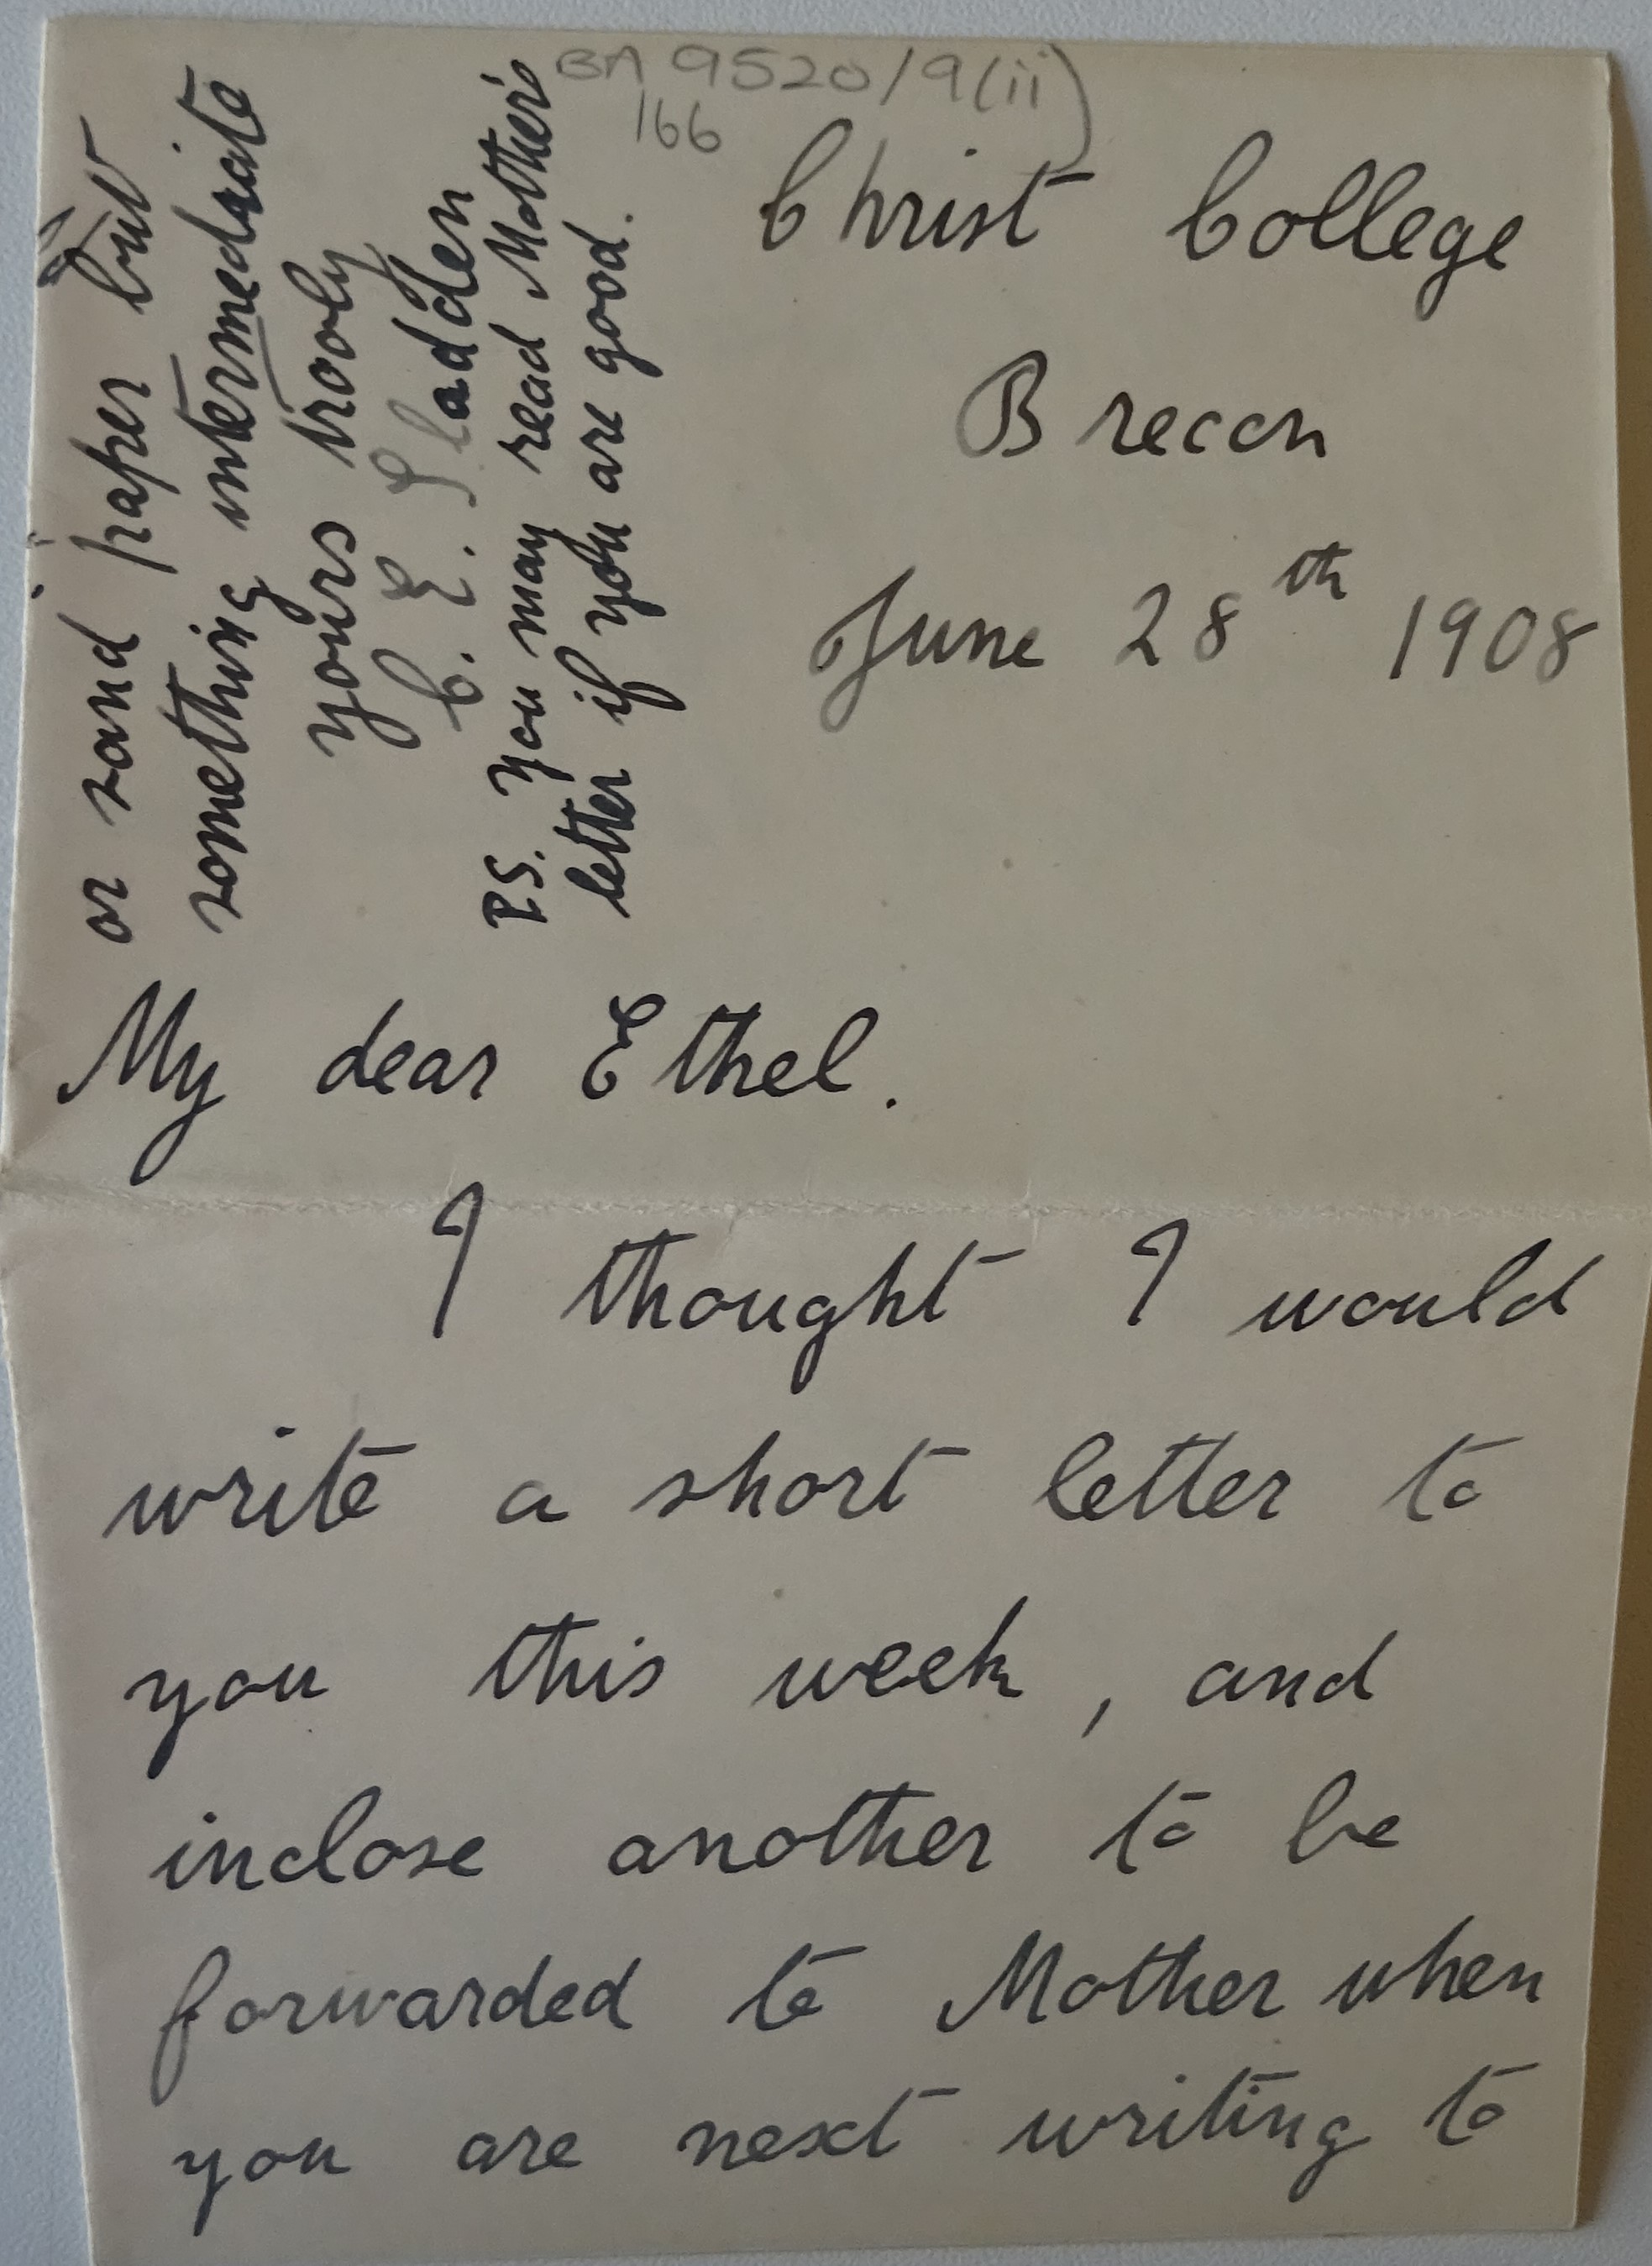 BA 9520/9(ii)
166
Christ College
Brecon
June 28th 1908
My dear Ethel.
I thought I would
write a short letter to
you this week, and
inclose another to be
forwarded to Mother when
you are next writing to
or sand paper but
something intermediate
yours trooly
C. E. Sladden
P.S. you may read Mother's
letter if you are good.